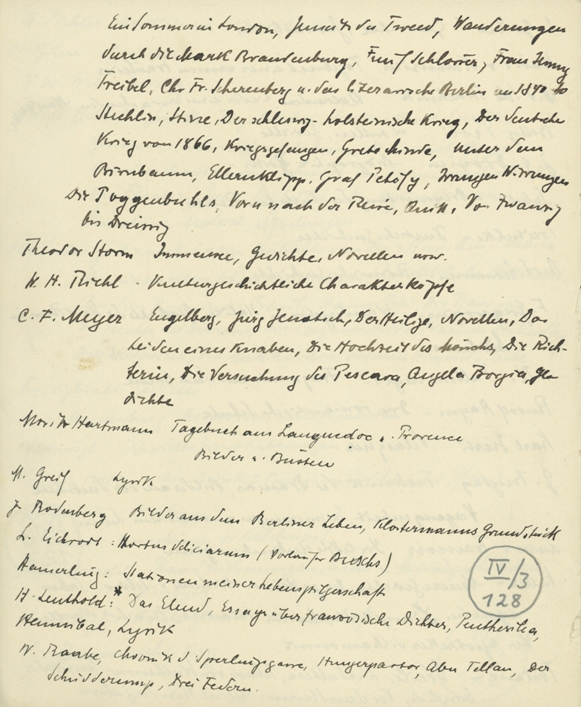 Ein Sommer in London, Jenseits des Tweed, Wanderungen
durch die Mark Brandenburg, Fünf Schlösser, Frau Jenny
Treibel, Chr. Fr. Scherenberg u. das literarische Berlin von 1840-60
Stechlin, Stine, Der schleswig-holsteinische Krieg, Der deutsche
Krieg von 1866, Kriegsgefangen, Grete Minde, unter dem
Birnbaum, Ellernklipp, Graf Petöfy, Irrungen Wirrungen
Die Poggenpuhls, Vor u nach der Reise, Quitt, Von Zwanzig
bis Dreissig
Theodor Storm Immensee, Gedichte, Novellen usw.
W. H. Riehl - Kulturgeschichtliche Charakterköpfe
C. F. Meyer Engelberg, Jürg Jenatsch, Der Heilige, Novellen, Das
Leiden eines Knaben, Die Hochzeit des Mönchs, Die Rich-
terin, Die Versuchung des Pescara, Angela Borgia, Ge
dichte
Moritz Hartmann Tagebuch aus Languedoc u. Provence
Bilder u. Büsten
M. Greif Lyrik
J. Rodenberg Bilder aus dem Berliner Leben, Klostermanns Grundstück
L. Eichrodt: Hortus deliciarum (Vorläufer Buschs)
Hamerling: Stationen meiner Lebenspilgerschaft
H. Leuthold: * Das Elend, Essays über französische Dichter, Penthesilea,
Hannibal, Lyrik
W. Raabe, Chronik d. Sperlingsgasse, Hungerpastor, Abu Telfan, Der
Schüdderump, Drei Federn.
IV/3
128